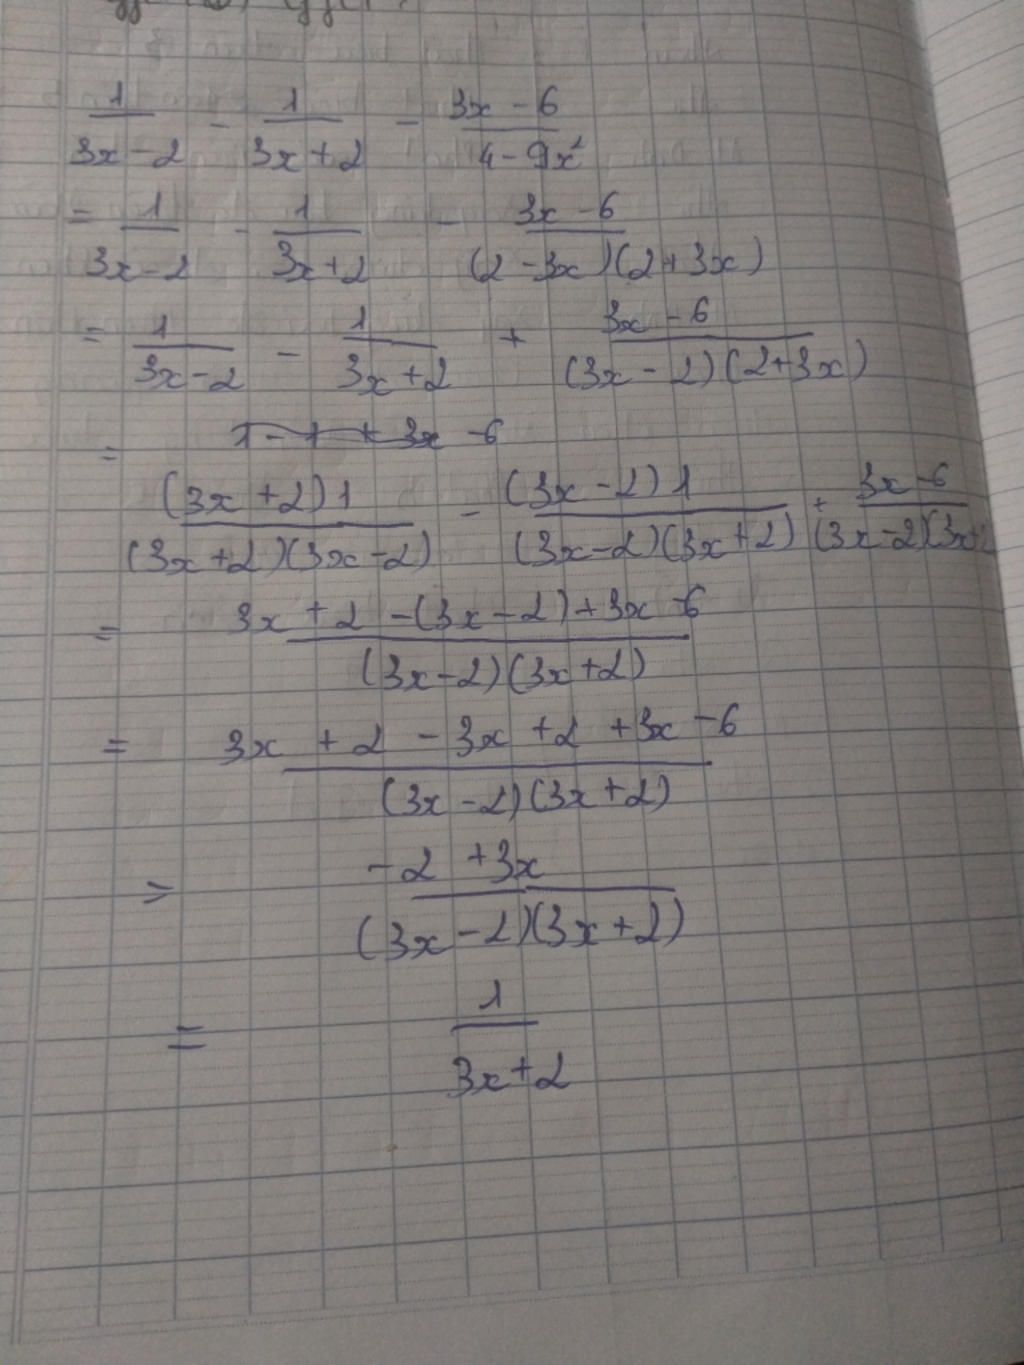 1/(3x-2) - 1/(3x+2) - (3x-6)/(4-9x²)
= 1/(3x-2) - 1/(3x+2) - (3x-6)/((2-3x)(2+3x))
= 1/(3x-2) - 1/(3x+2) + (3x-6)/((3x-2)(2+3x))
= 1-1+3x-6
((3x+2)1)/((3x+2)(3x-2)) - ((3x-2)1)/((3x-2)(3x+2)) + (3x-6)/((3x-2)(3x+2
= (3x+2-(3x-2)+3x-6)/((3x-2)(3x+2))
= (3x+2-3x+2+3x-6)/((3x-2)(3x+2))
= (-2+3x)/((3x-2)(3x+2))
= 1/(3x+2)